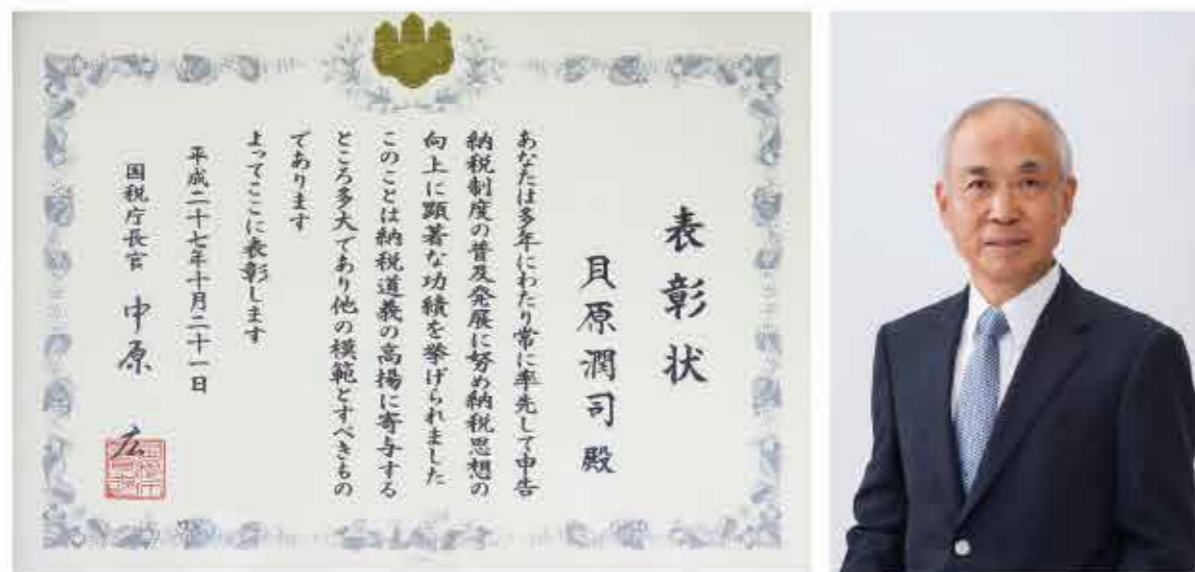 表彰状
貝原潤司殿
あなたは多年にわたり常に率先して申告
納税制度の普及発展に努め納税思想の
向上に顕著な功績を挙げられました
このことは納税道義の高揚に寄与する
ところ多大であり他の模範とすべきもの
であります
よってここに表彰します
平成二十七年十月二十一日
国税庁長官 中原 広